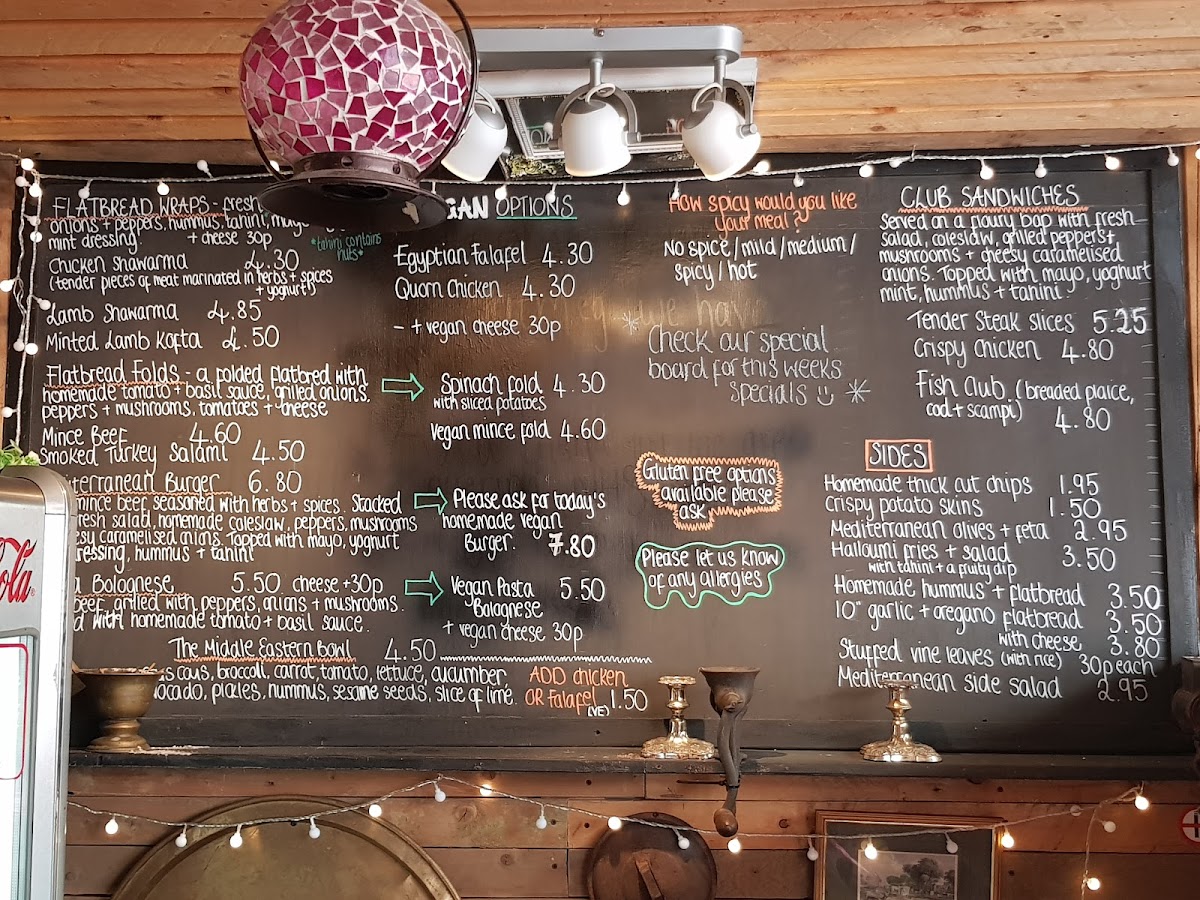 FLATBREAD WRAPS - fresh
onions + peppers, hummus, tahini, mayo
mint dressing. + cheese 30p
*tahini contains
nuts*
Chicken Shawarma 4.30
(tender pieces of meat marinated in herbs + spices
+ yoghurt)
Lamb Shawarma 4.85
Minted Lamb Kofta 4.50
Flatbread Folds - a folded flatbred with
homemade tomato + basil sauce, grilled onions,
peppers + mushrooms, tomatoes + cheese
Mince Beef 4.60
Smoked Turkey Salami 4.50
Burger 6.80
mince beef, seasoned with herbs + spices. Stacked
salad, homemade coleslaw, peppers, mushrooms
caramelised onions. Topped with mayo, yoghurt
hummus + tahini
Bolognese 5.50 cheese +30p
beef, grilled with peppers, onions + mushrooms.
with homemade tomato + basil sauce.
The Middle Eastern Bowl 4.50
cous, broccoli, carrot, tomato, lettuce, cucumber
pickles, hummus, sesame seeds, slice of lime.
ADD chicken
OR Falafel 1.50
(VE)
OPTIONS
Egyptian Falafel 4.30
Quorn Chicken 4.30
- + vegan cheese 30p
Spinach fold 4.30
with sliced potatoes
Vegan mince fold 4.60
Please ask for today's
homemade vegan
Burger. 7.80
Vegan Pasta 5.50
Bolognese
+ vegan cheese 30p
How spicy would you like
your meal?
No spice / mild / medium /
spicy / hot
Check our special
board for this weeks
specials
Gluten free options
available please
ask
Please let us know
of any allergies
CLUB SANDWICHES
Served on a floury bap with fresh
salad, coleslaw, grilled peppers +
mushrooms + cheesy caramelised
onions. Topped with mayo, yoghurt
mint, hummus + tahini.
Tender Steak slices 5.25
Crispy Chicken 4.80
Fish Club (breaded plaice,
cod + scampi) 4.80
SIDES
Homemade thick cut chips 1.95
Crispy potato skins 1.50
Mediterranean olives + feta 2.95
Halloumi fries + salad 3.50
with tahini + a fruity dip
Homemade hummus + flatbread 3.50
10" garlic + oregano flatbread 3.50
with cheese 3.80
Stuffed vine leaves (with rice) 30p each
Mediterranean side salad 2.95